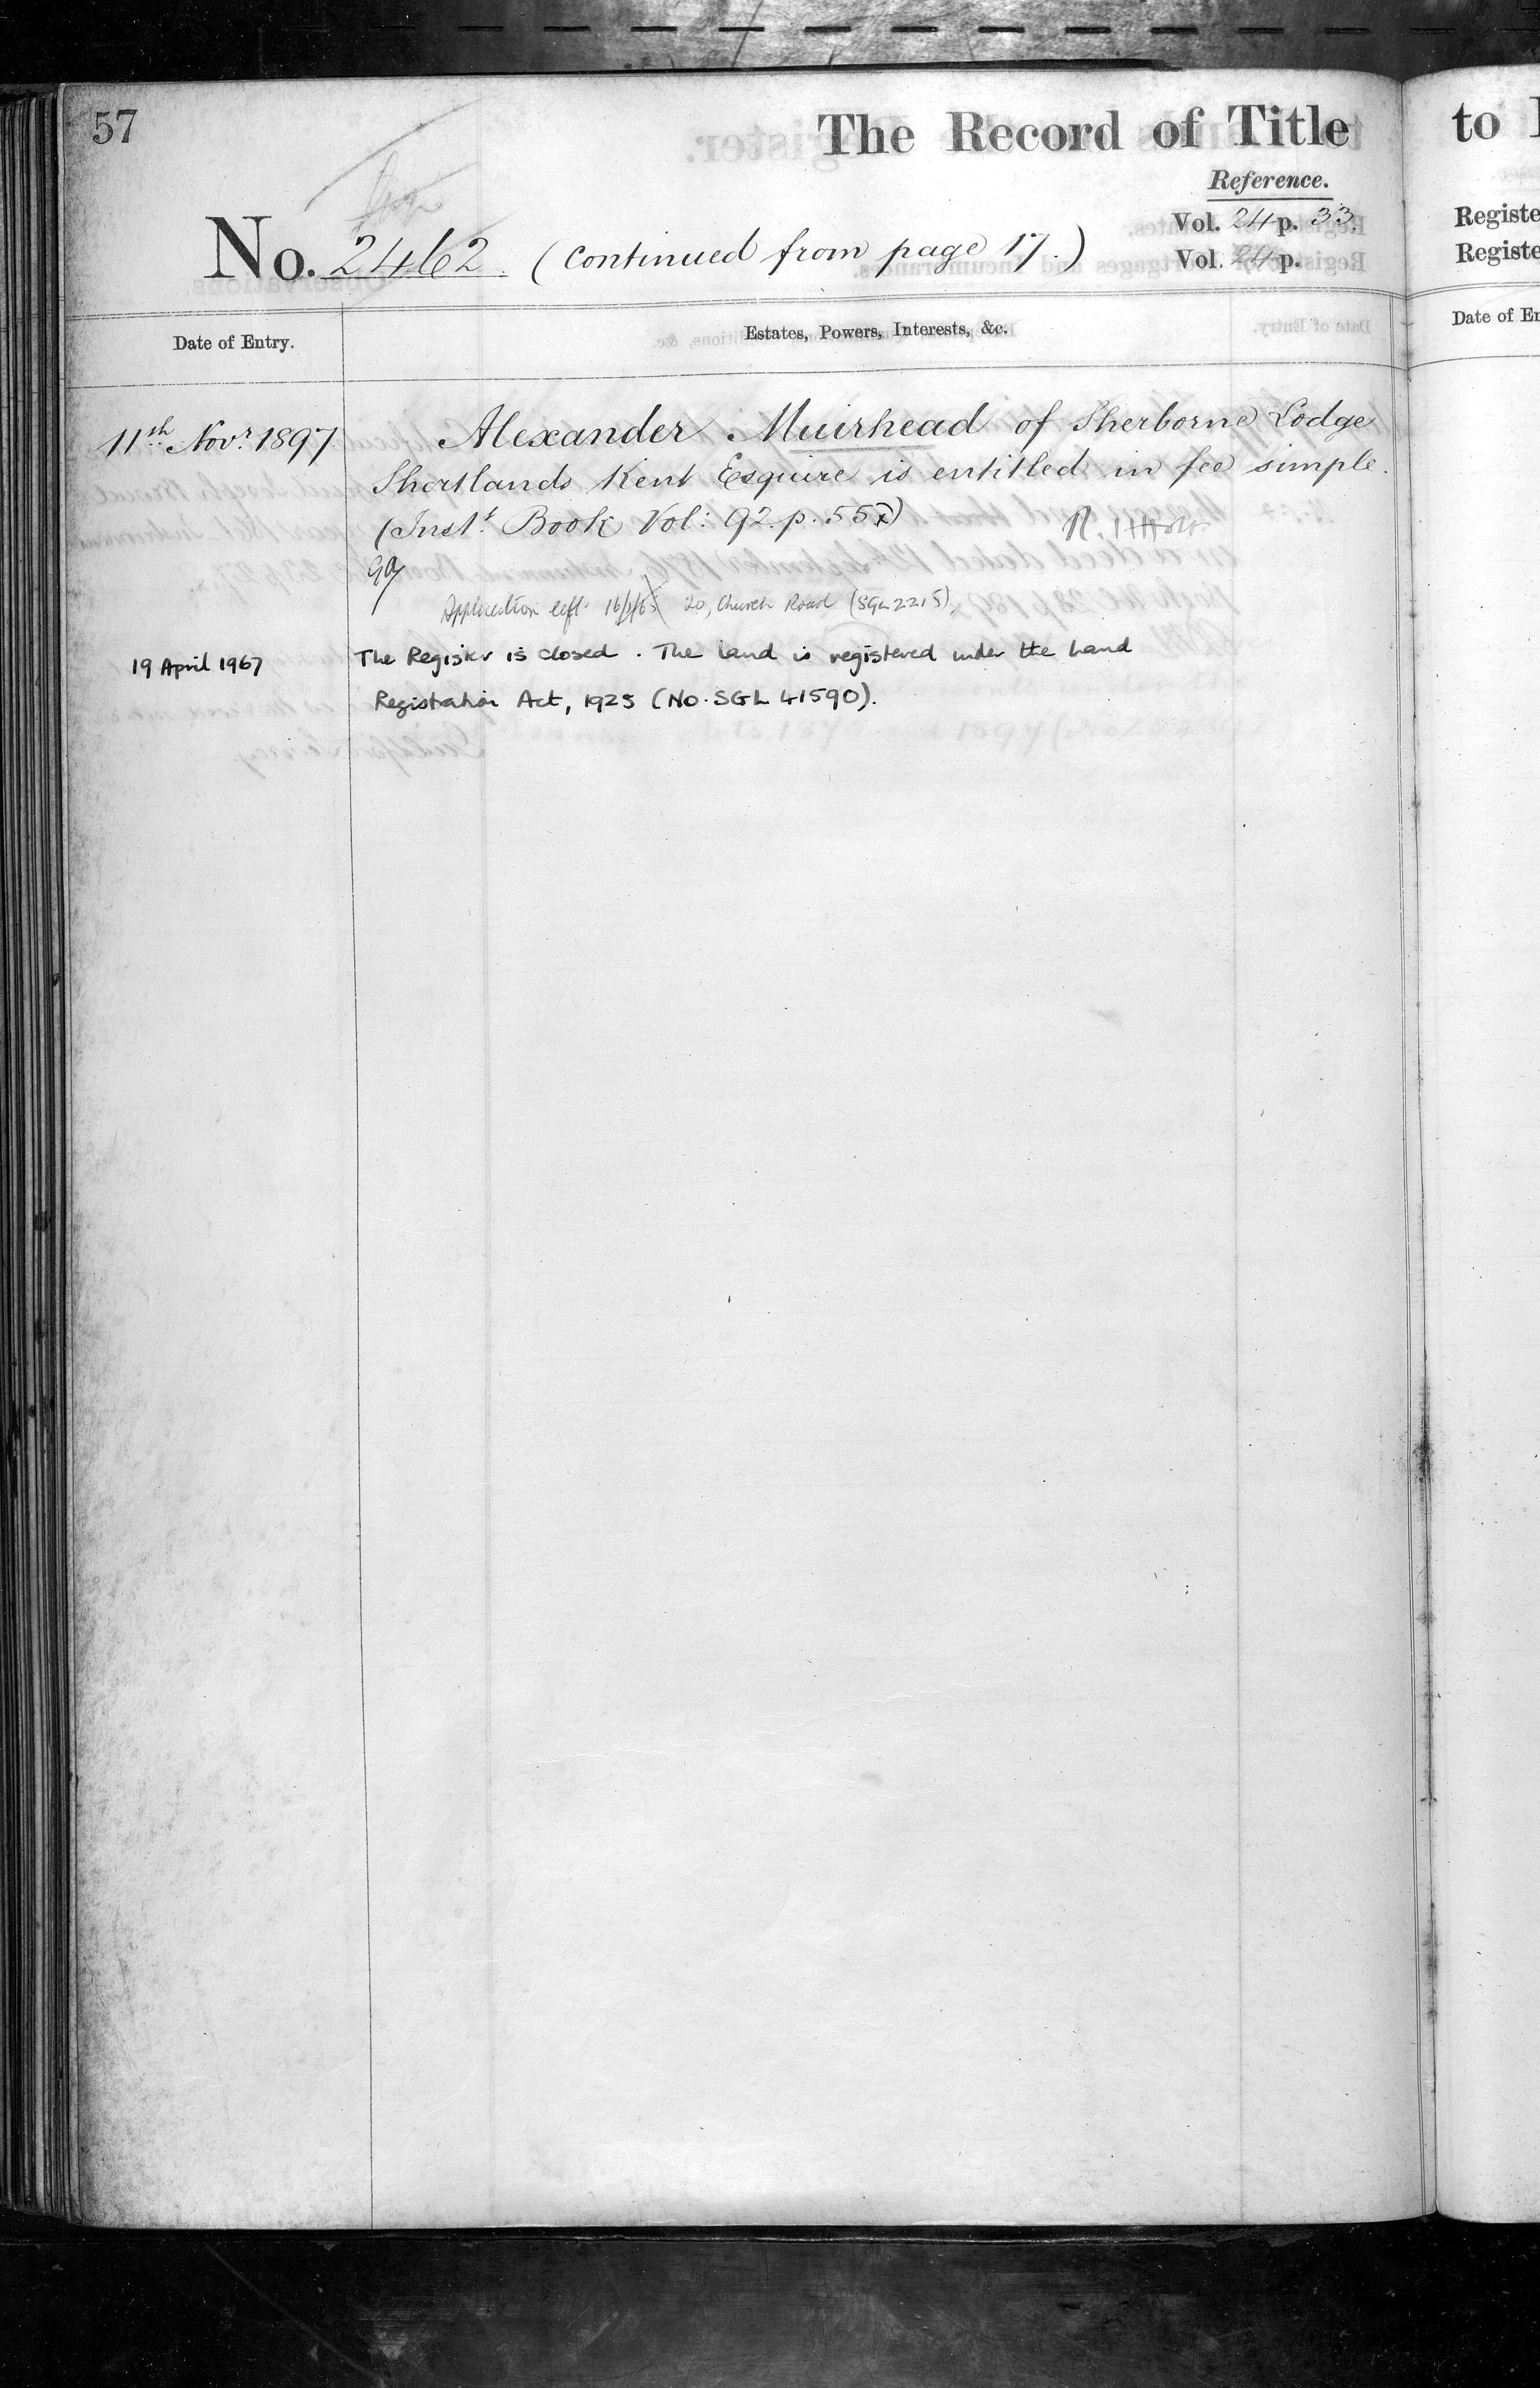 57
The Record of Title
to
Reference.
Vol. 24 p. 33.
Vol. 24 p.
No. 2462. (continued from page 17.)
Registe
Registe
Date of Entry.
Estates, Powers, Interests, &c.
Date of En
11th Novr. 1897.
Alexander Muirhead of Sherborne Lodge
Shortlands Kent Esquire is entitled in fee simple.
(Inst. Book Vol: 92. p. 55)
Application left 20, Church Road (SGL 2215)
19 April 1967
The Register is closed. The land is registered under the Land
Registration Act, 1925 (No. SGL 41590).